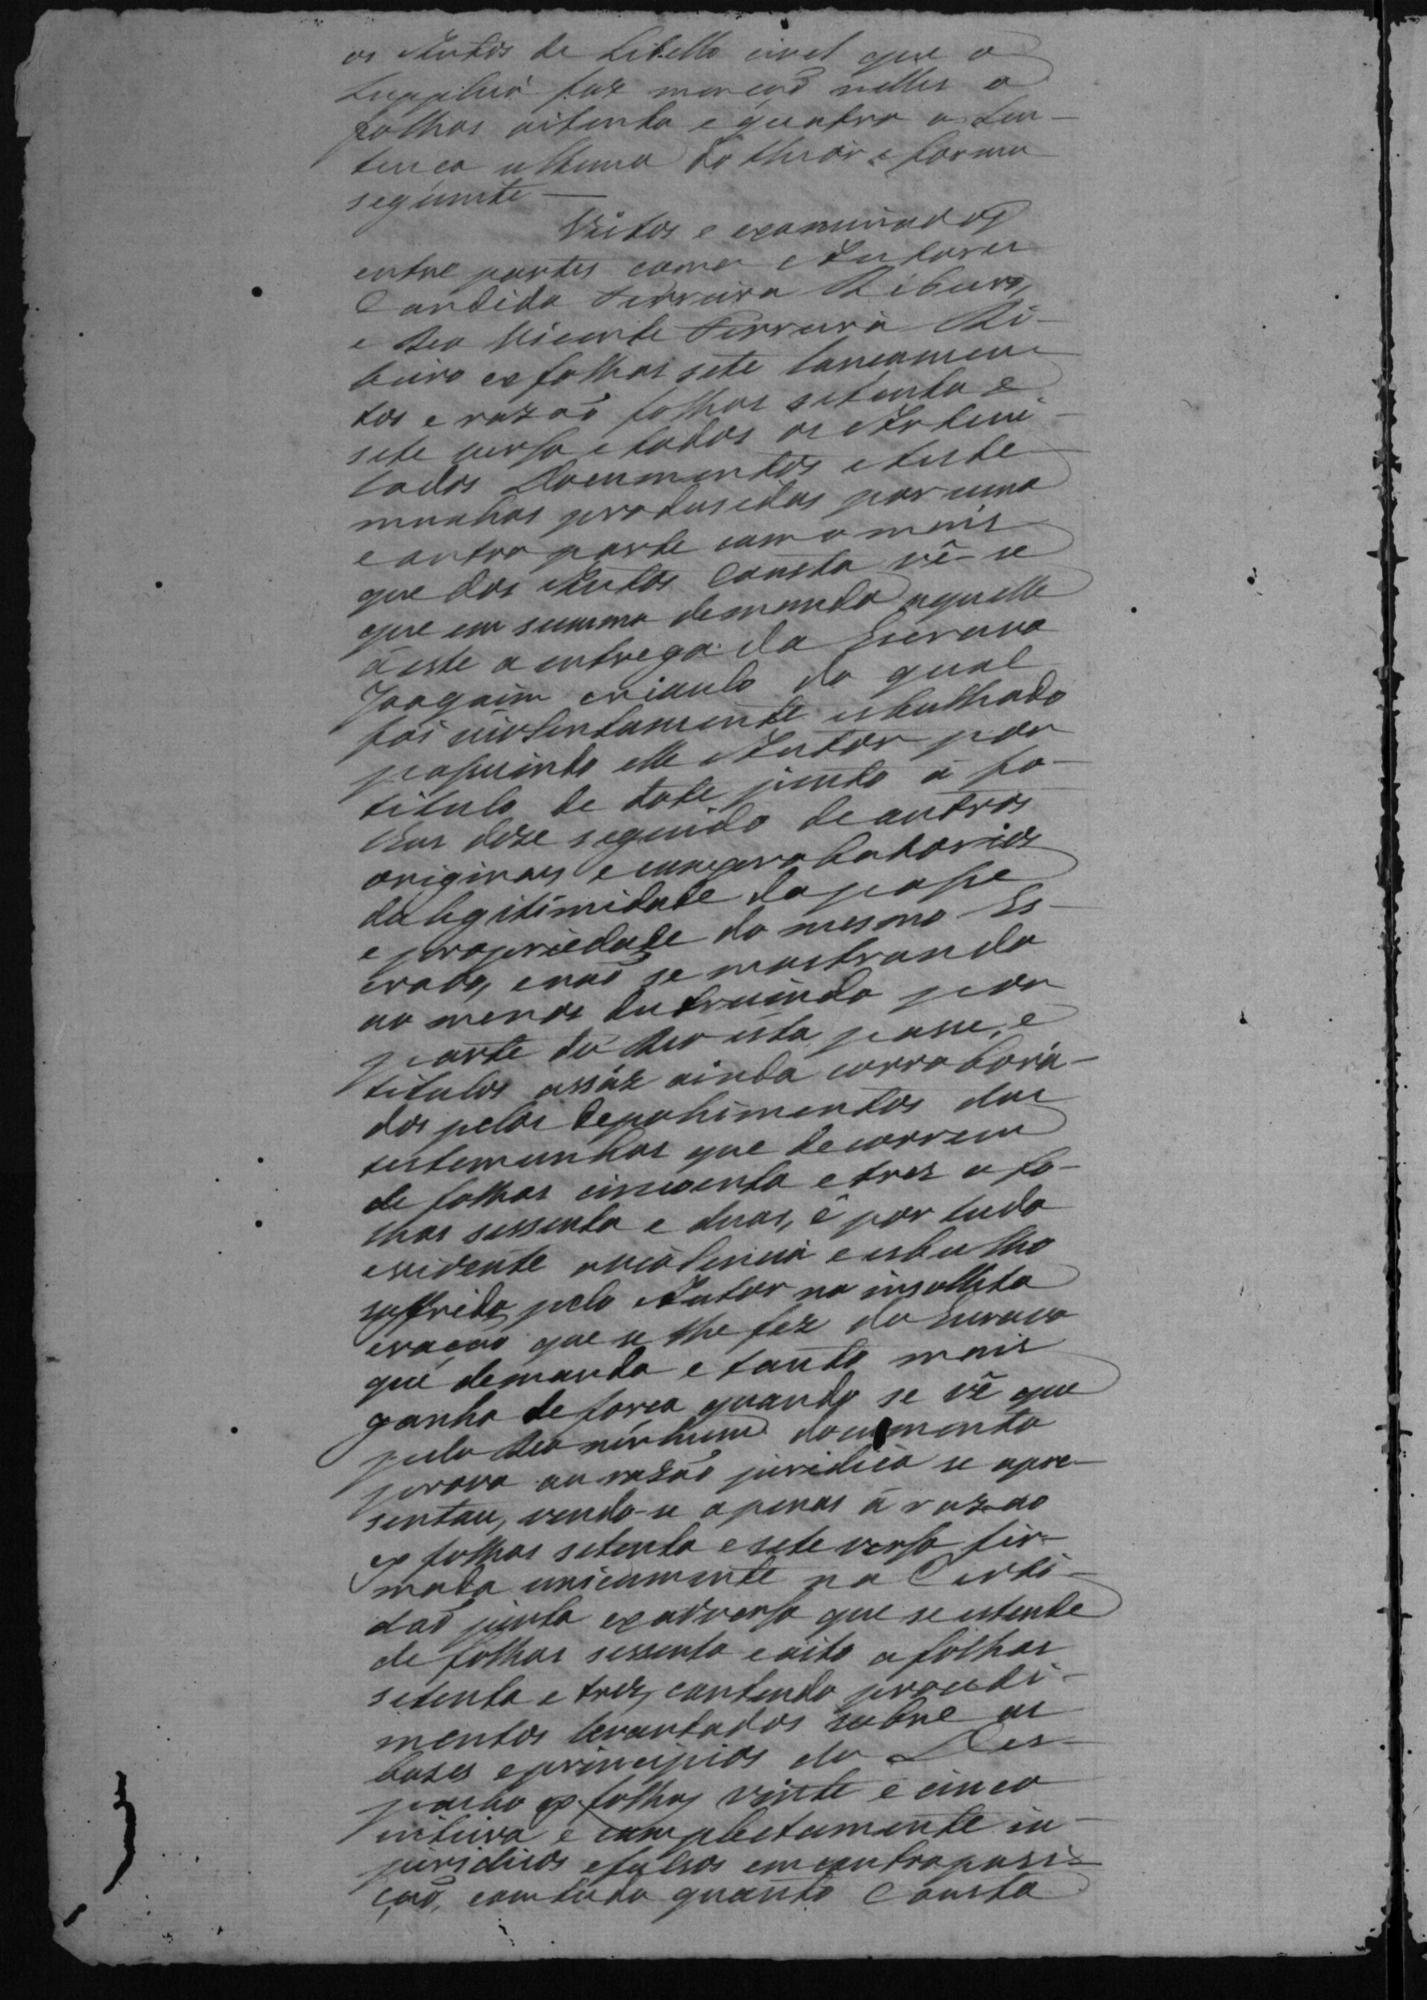 os Autos de Libello civel que o
Supplica faz menção nelles a
folhas oitenta e quatro a Sen-
tença ultima do theor e forma
seguinte —
Vistos e examinados
entre partes como Autores
Candido Ferreira Ribeiro,
e Reo Vicente Ferreira Ri-
beiro ex folhas sete lançamen
tos e razão folhas setenta e
sete verso e todos os Articu-
lados Documentos e teste
munhas produsidas por uma
e outra parte com o mais
que dos Autos Consta vê-se
que em summa demanda aquelle
á este a entrega do Escravo
Joaquim crioulo do qual
foi violentamente esbulhado
possuindo elle Autor por
titulo de dote junto á fo-
lhas doze seguido de outros
originaes e comprobatorios
da legitimidade da posse
e propriedade do mesmo Es-
cravo, e não se mostrando
ao menos destruindo por
parte do Reo esta posse, e
titulos assáz ainda corrobora-
dos pelos depohimentos das
testemunhas que decorrem
de folhas cincoenta e tres a fo-
lhas sessenta e duas, é por tudo
evidente a violencia e esbulho
soffrido pelo Autor na insollita
que se lhe fez do Escravo
que demanda e tanto mais
ganha de força quando se vê que
pelo Reo nenhum documento
prova ou razão juridica se apre-
sentou, vendo-se apenas á razão
ex folhas setenta e sete verso fir-
mada unicamente na Certi-
dão junta ex adverso que se estende
de folhas sessenta e oito a folhas
setenta e tres, contendo procedi-
mentos levantados sobre as
bases e principios do Des-
pacho ex folhas vinte e cinco
inteiro e completamente in-
juridicos e falsos em contraposi-
ção, com tudo quanto Consta